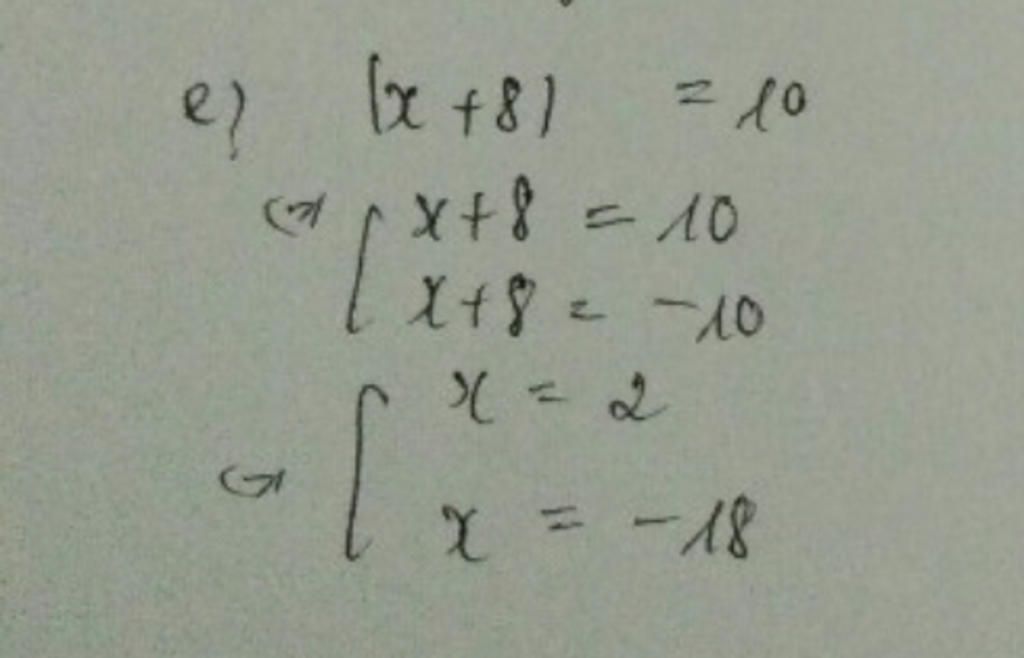 e) |x+8| = 10
⇔ [ x+8 = 10
x+8 = -10
⇔ [ x = 2
x = -18